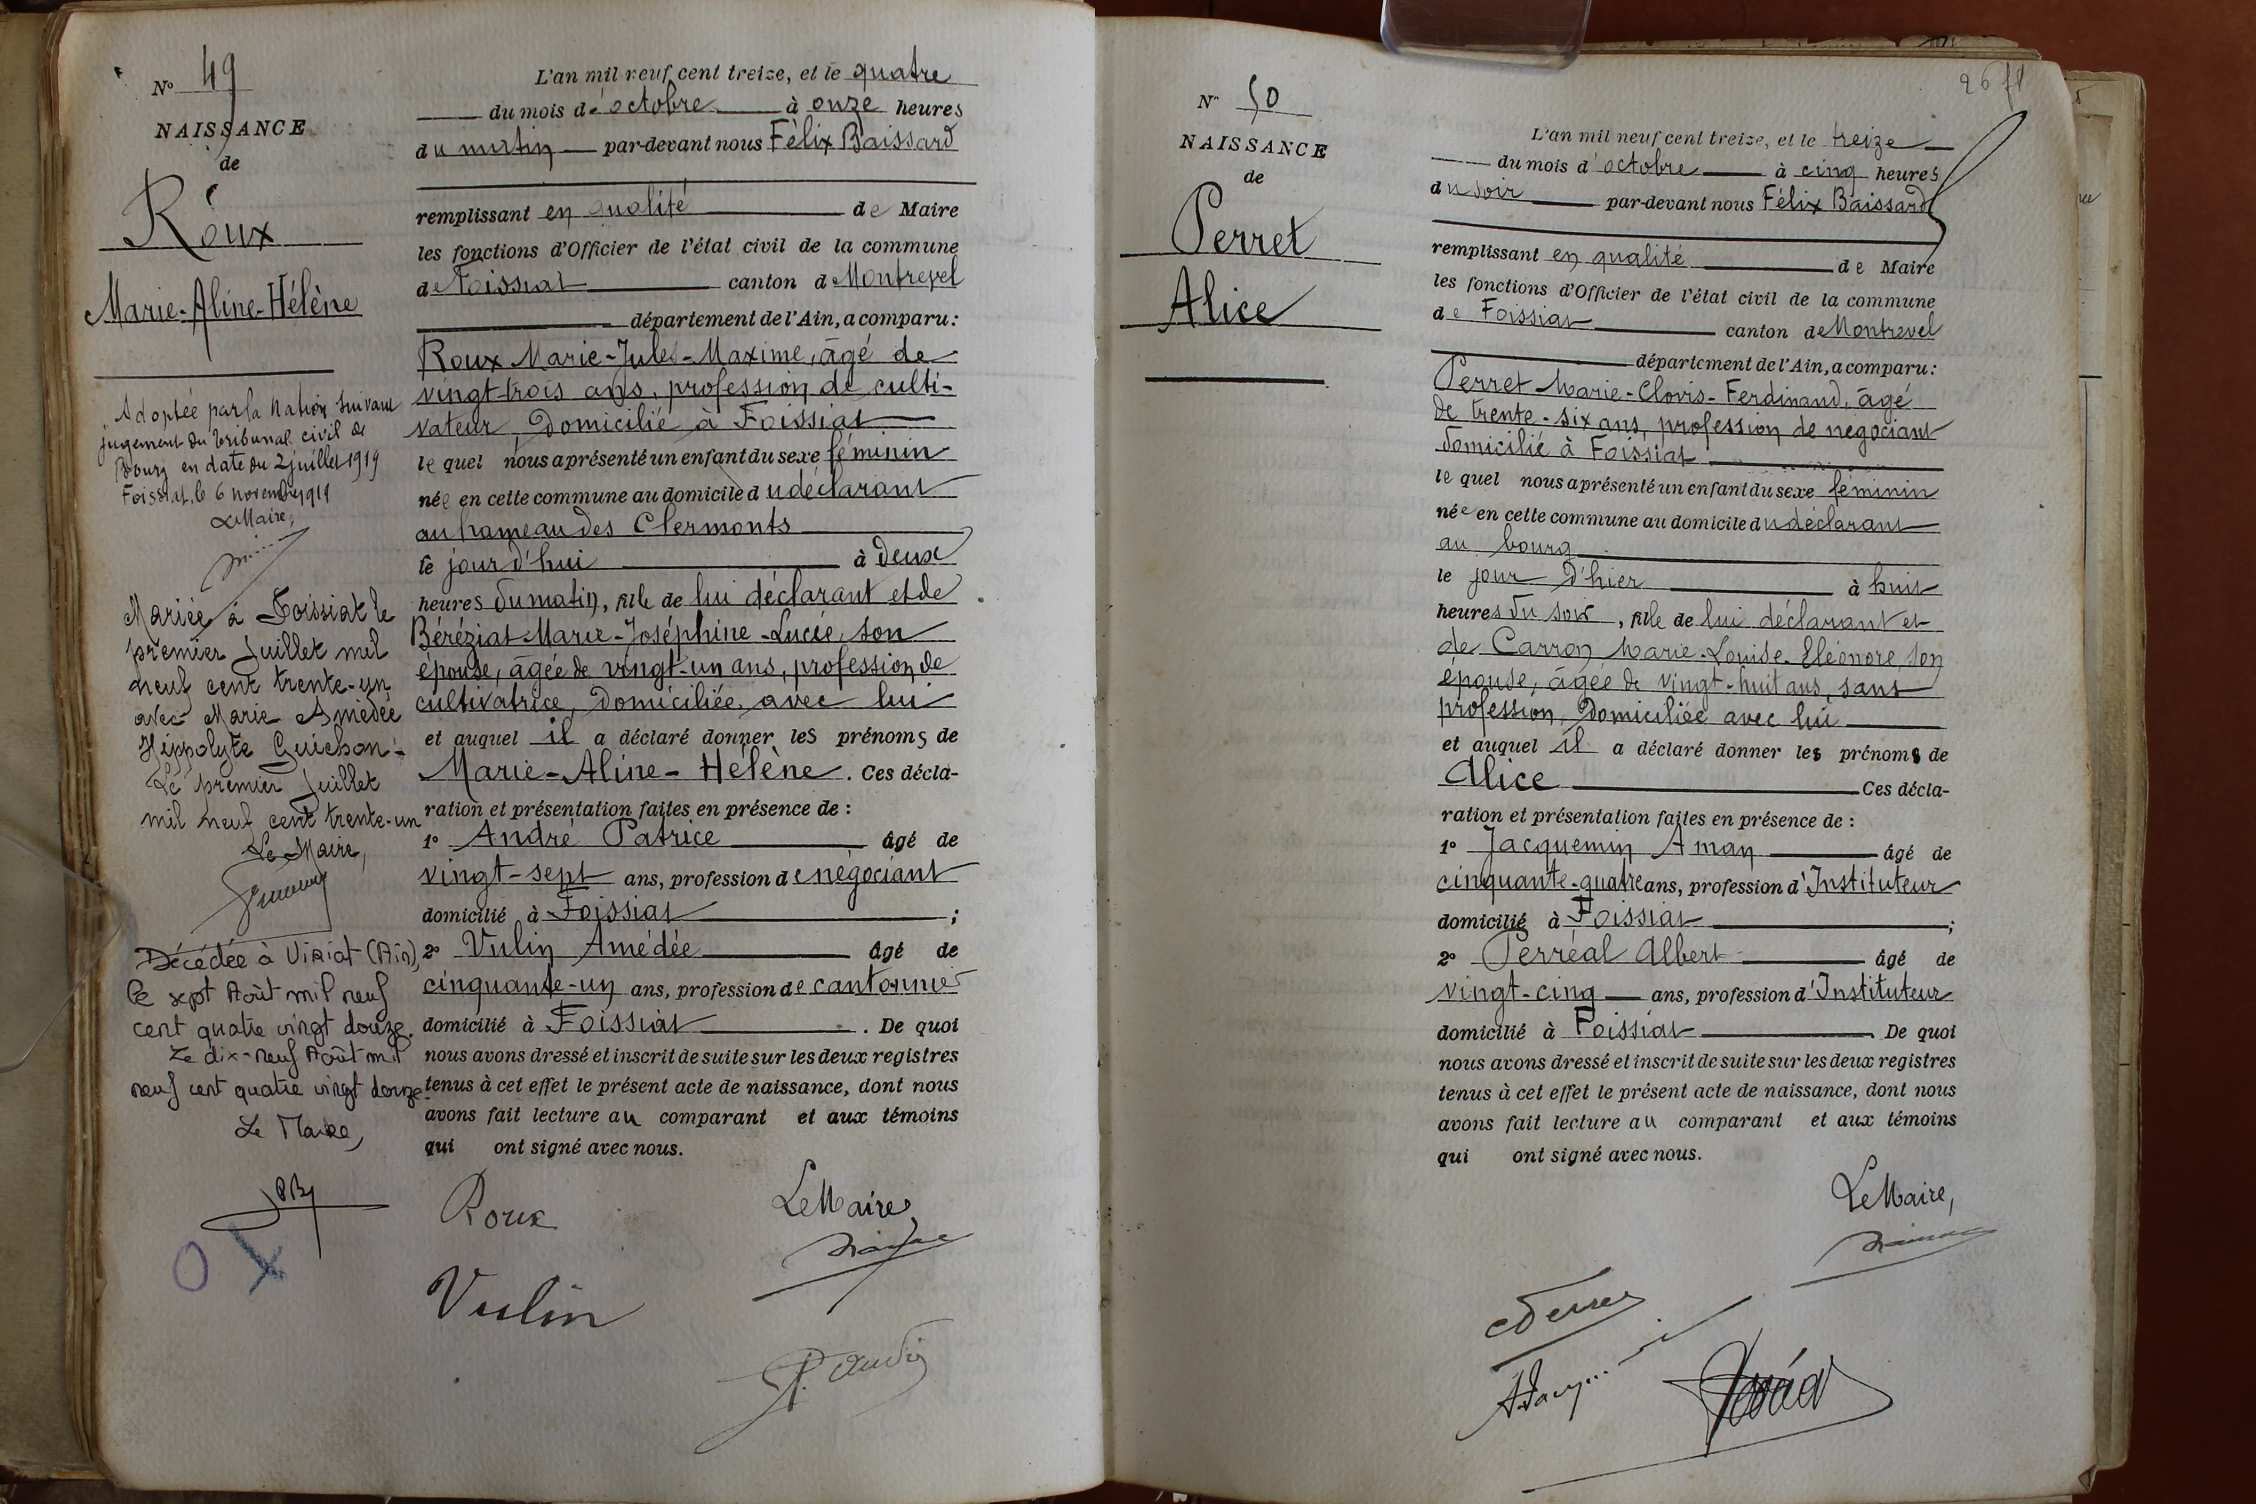 N° 49
NAISSANCE
de
Roux
Marie-Aline-Hélène
Adoptée par la Nation suivant
jugement du tribunal civil de
Bourg en date du 2 juillet 1919
Foissiat, le 6 novembre 1919
Le Maire,
Mariée à Foissiat le
premier Juillet mil
neuf cent trente-un
avec Marie Amédée
Hippolyte Guichon.
Le premier Juillet
mil neuf cent trente-un
Le Maire,
Décédée à Viriat (Ain),
le sept Août mil neuf
cent quatre vingt douze.
Le dix-neuf Août mil
neuf cent quatre vingt douze.
Le Maire,
L'an mil neuf cent treize, et le quatre
du mois d'octobre à onze heures
du matin par-devant nous Félix Baissard
remplissant en qualité de Maire
les fonctions d'Officier de l'état civil de la commune
de Foissiat canton de Montrevel
département de l'Ain, a comparu:
Roux Marie-Jules-Maxime, âgé de
vingt-trois ans, profession de culti-
vateur, domicilié à Foissiat
lequel nous a présenté un enfant du sexe féminin
née en cette commune au domicile du déclarant
au hameau des Clermonts
le jour d'hui à deux
heures du matin, fille de lui déclarant et de
Béréziat Marie-Joséphine-Lucie, son
épouse, âgée de vingt-un ans, profession de
cultivatrice, domiciliée avec lui
et auquel il a déclaré donner les prénoms de
Marie-Aline-Hélène. Ces décla-
ration et présentation faites en présence de :
1° André Patrice âgé de
vingt-sept ans, profession de négociant
domicilié à Foissiat ;
2° Vulin Amédée âgé de
cinquante-un ans, profession de cantonnier
domicilié à Foissiat. De quoi
nous avons dressé et inscrit de suite sur les deux registres
tenus à cet effet le présent acte de naissance, dont nous
avons fait lecture au comparant et aux témoins
qui ont signé avec nous.
Roux
Le Maire,
Vulin
N° 50
NAISSANCE
de
Perret
Alice
L'an mil neuf cent treize, et le treize
du mois d'octobre à cinq heures
du soir par-devant nous Félix Baissard
remplissant en qualité de Maire
les fonctions d'Officier de l'état civil de la commune
de Foissiat canton de Montrevel
département de l'Ain, a comparu:
Perret Marie-Clovis-Ferdinand, âgé
de trente-six ans, profession de negociant
domicilié à Foissiat
lequel nous a présenté un enfant du sexe féminin
née en cette commune au domicile du déclarant
au bourg
le jour d'hier à huit
heures du soir, fille de lui déclarant et
de Carron Marie-Louise-Eléonore, son
épouse, âgée de vingt-huit ans, sans
profession, domiciliée avec lui
et auquel il a déclaré donner les prénoms de
Alice Ces décla-
ration et présentation faites en présence de :
1° Jacquemin Aman âgé de
cinquante-quatre ans, profession d'Instituteur
domicilié à Foissiat ;
2° Perréal Albert âgé de
vingt-cinq ans, profession d'Instituteur
domicilié à Foissiat. De quoi
nous avons dressé et inscrit de suite sur les deux registres
tenus à cet effet le présent acte de naissance, dont nous
avons fait lecture au comparant et aux témoins
qui ont signé avec nous.
Le Maire,